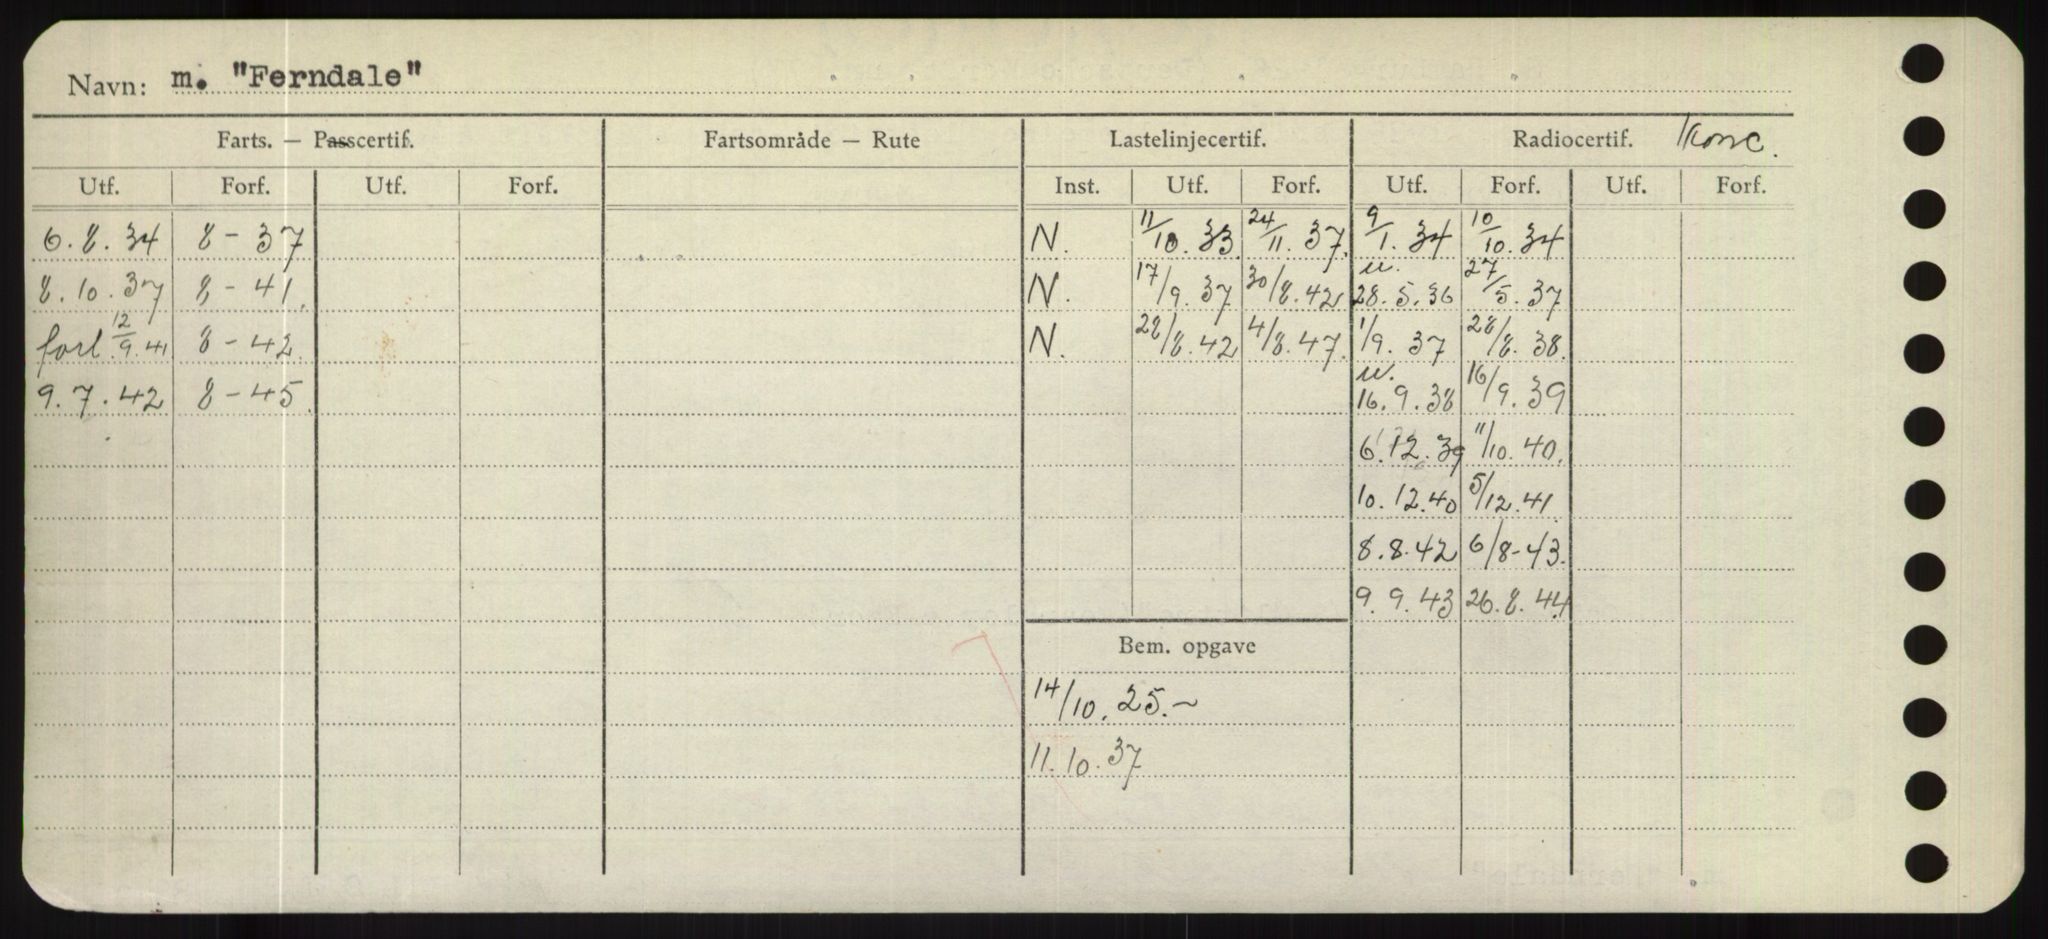 Navn: m. "Ferndale"
Farts. — Passcertif. Fartsområde — Rute Lastelinjecertif. Radiocertif. Konc.
Utf. Forf. Utf. Forf. Inst. Utf. Forf. Utf. Forf. Utf. Forf.
6.8.34 8-37 N. 11/10.33 24/11.37. 9/1.34 10/10.34
8.10.37 8-41. N. 17/9.37 30/8.42 u. 28.5.36 27/5.37
forl. 12/9.41 8-42. N. 28/8.42 4/8.47. 1/9.37 28/8.38.
9.7.42 8-45. u. 16.9.38 16/9.39
6.12.39 11/10.40.
10.12.40 5/12.41.
8.8.42 6/8-43.
9.9.43 26.8.44
Bem. opgave
14/10.25.~
11.10.37